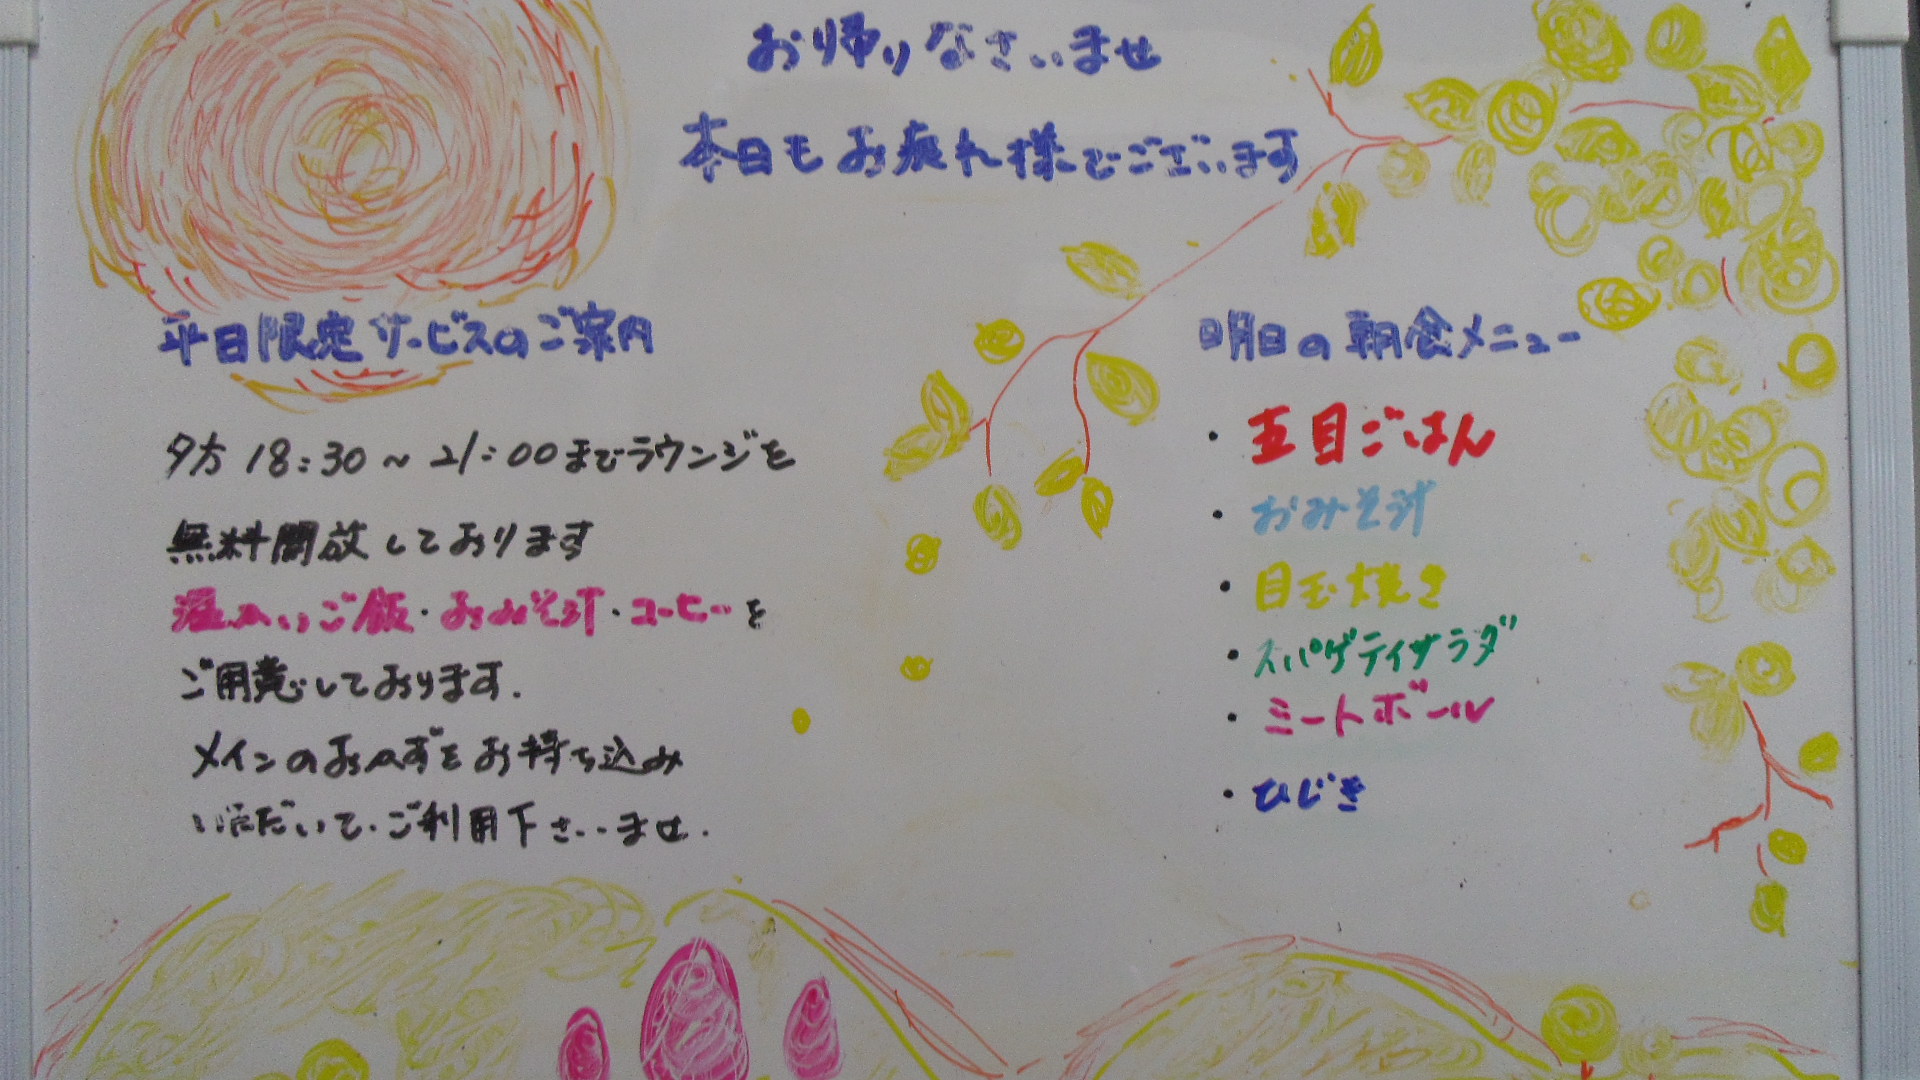 お帰りなさいませ
本日もお疲れ様でございます
平日限定サービスのご案内
夕方 18:30～21:00までラウンジを
無料開放しております
温かいご飯・おみそ汁・コーヒーを
ご用意しております.
メインのおかずをお持ち込み
いただいて、ご利用下さいませ.
明日の朝食メニュー
・五目ごはん
・おみそ汁
・目玉焼き
・スパゲティサラダ
・ミートボール
・ひじき